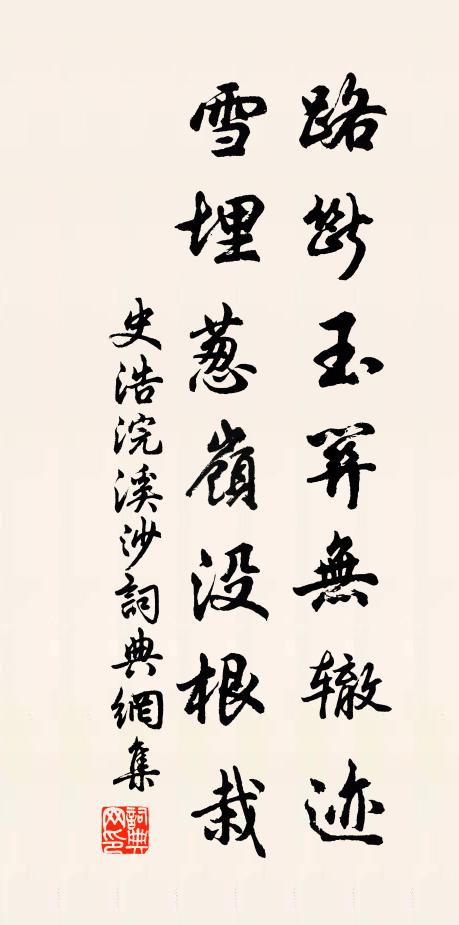 路斷玉關無辙迹
雪埋葱嶺没根栽
史浩浣溪沙詞典網集
詞典網印